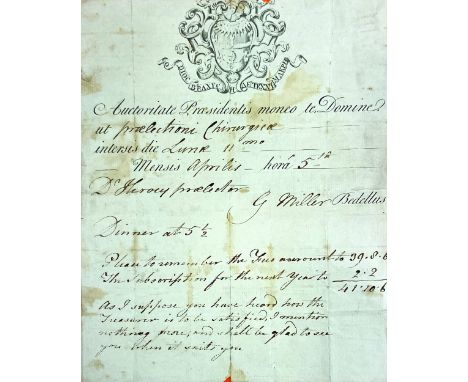 Auctoritate Præsidentis moneo te, Domine D
ut prælectioni Chirurgicæ
intersis die Lunæ 11mo
Mensis Aprilis – horâ 5ta
Dr Hervey prælector
G Miller Bedellus
Dinner at 5½
Please to remember the Fees amount to 39.8.6
The subscription for the next Year to 2.2
41.10.6
As I suppose you have heard how the
Treasurer is to be satisfied, I mention
nothing more, and shall be glad to see
you when it suits you